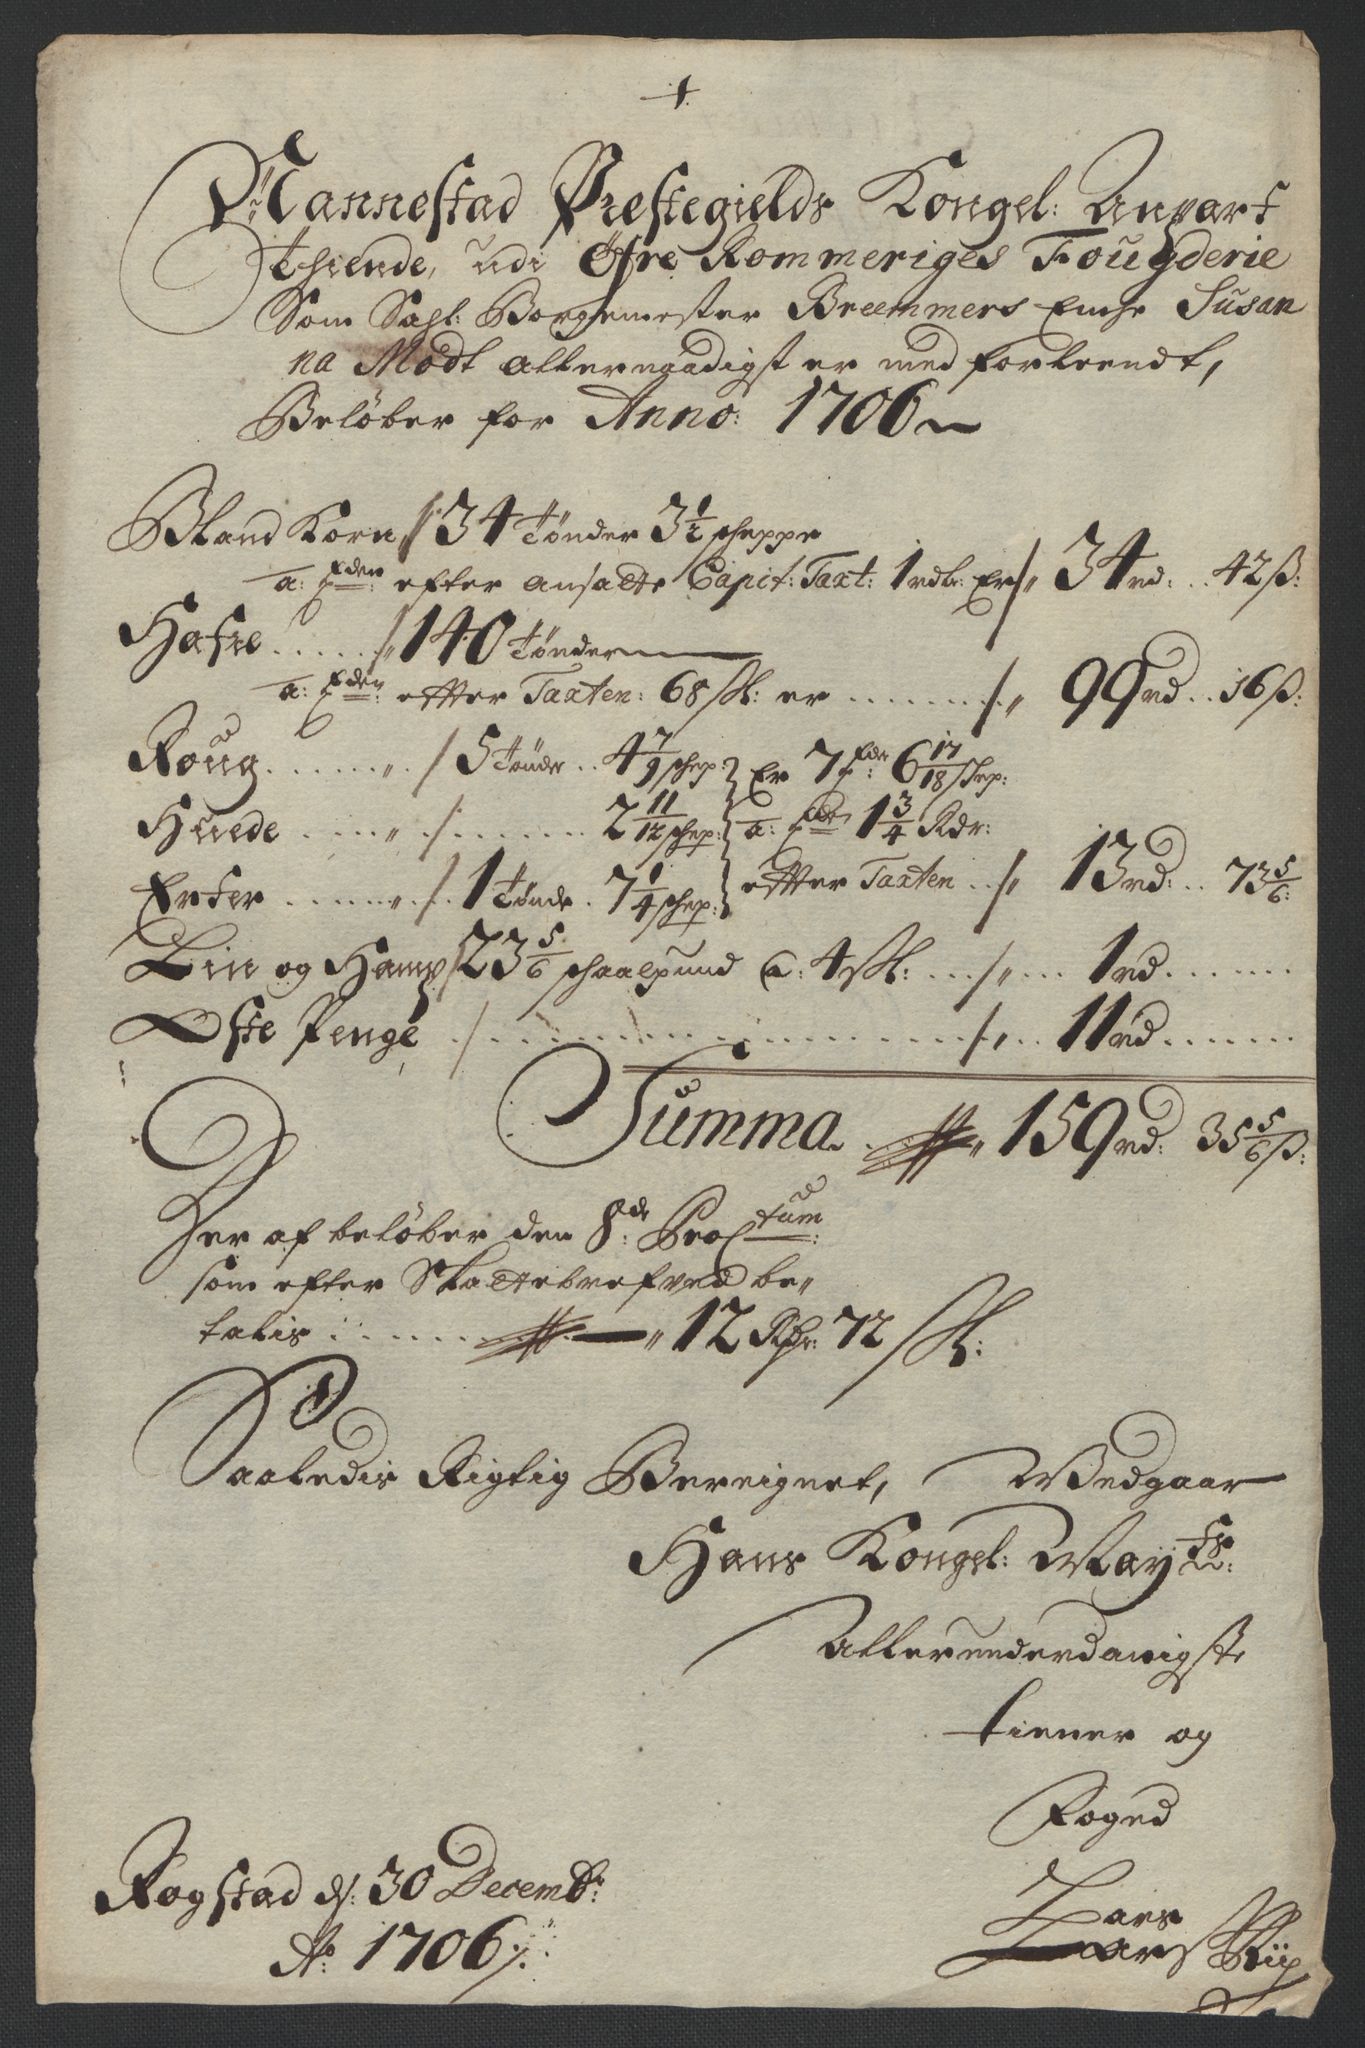 1.
Nannestad Præstegields Kongel: Anpart
Thiende, udi Øfre Rommeriges Fougderie
Som Sahl: Borgemester Breemmers Encke Susan
na Mödt allernaadigst er med forleendt,
Belöber for Anno: 1706
Bland Korn // 34 Tönder 3 1/2 scheppe
a: Tden: efter ansatte Capit: Taxt: 1 rdlr. Er /" 34 rd: .. 42 ß:
Hafre ...... /" 140 Tönder
a: Tden: efter Taxten: 68 Sk: er ...... /" 99 rd .. 16 ß:
Roug ...... /. 5 Tönde .. 4 7/9 schep: Er 7 Tdr: 6 17/18 schep:
Huede ...... /. ...... 2 11/12 schep: a: Tde 1 3/4 Rdr:
Erter ...... /. 1 Tönde . 7 1/4 schep: efter Taxten .. /" 13 rd: .. 73 5/6:
Lin og Hamp / 23 5/6 schaalpund a: 4 Sk: ... /" ... 1 rd ......
Oste Penge / ...... /" .. 11 rd ......
Summa. " 159 rd: 35 5/6 ß:
Her af belöber den 8de: Pro Ctum:
som efter Skattebrefved be"
talis ...... " 12 Rdr: 72 Sk:
Saaledis Rigtig Bereignet, Vedgaar
Hans Kongel: Maytts:
Allerunderdanigste
tiener og
Foged
Lars
Lars Riis
Rogstad d: 30 Decembr:
Ao: 1706 /.